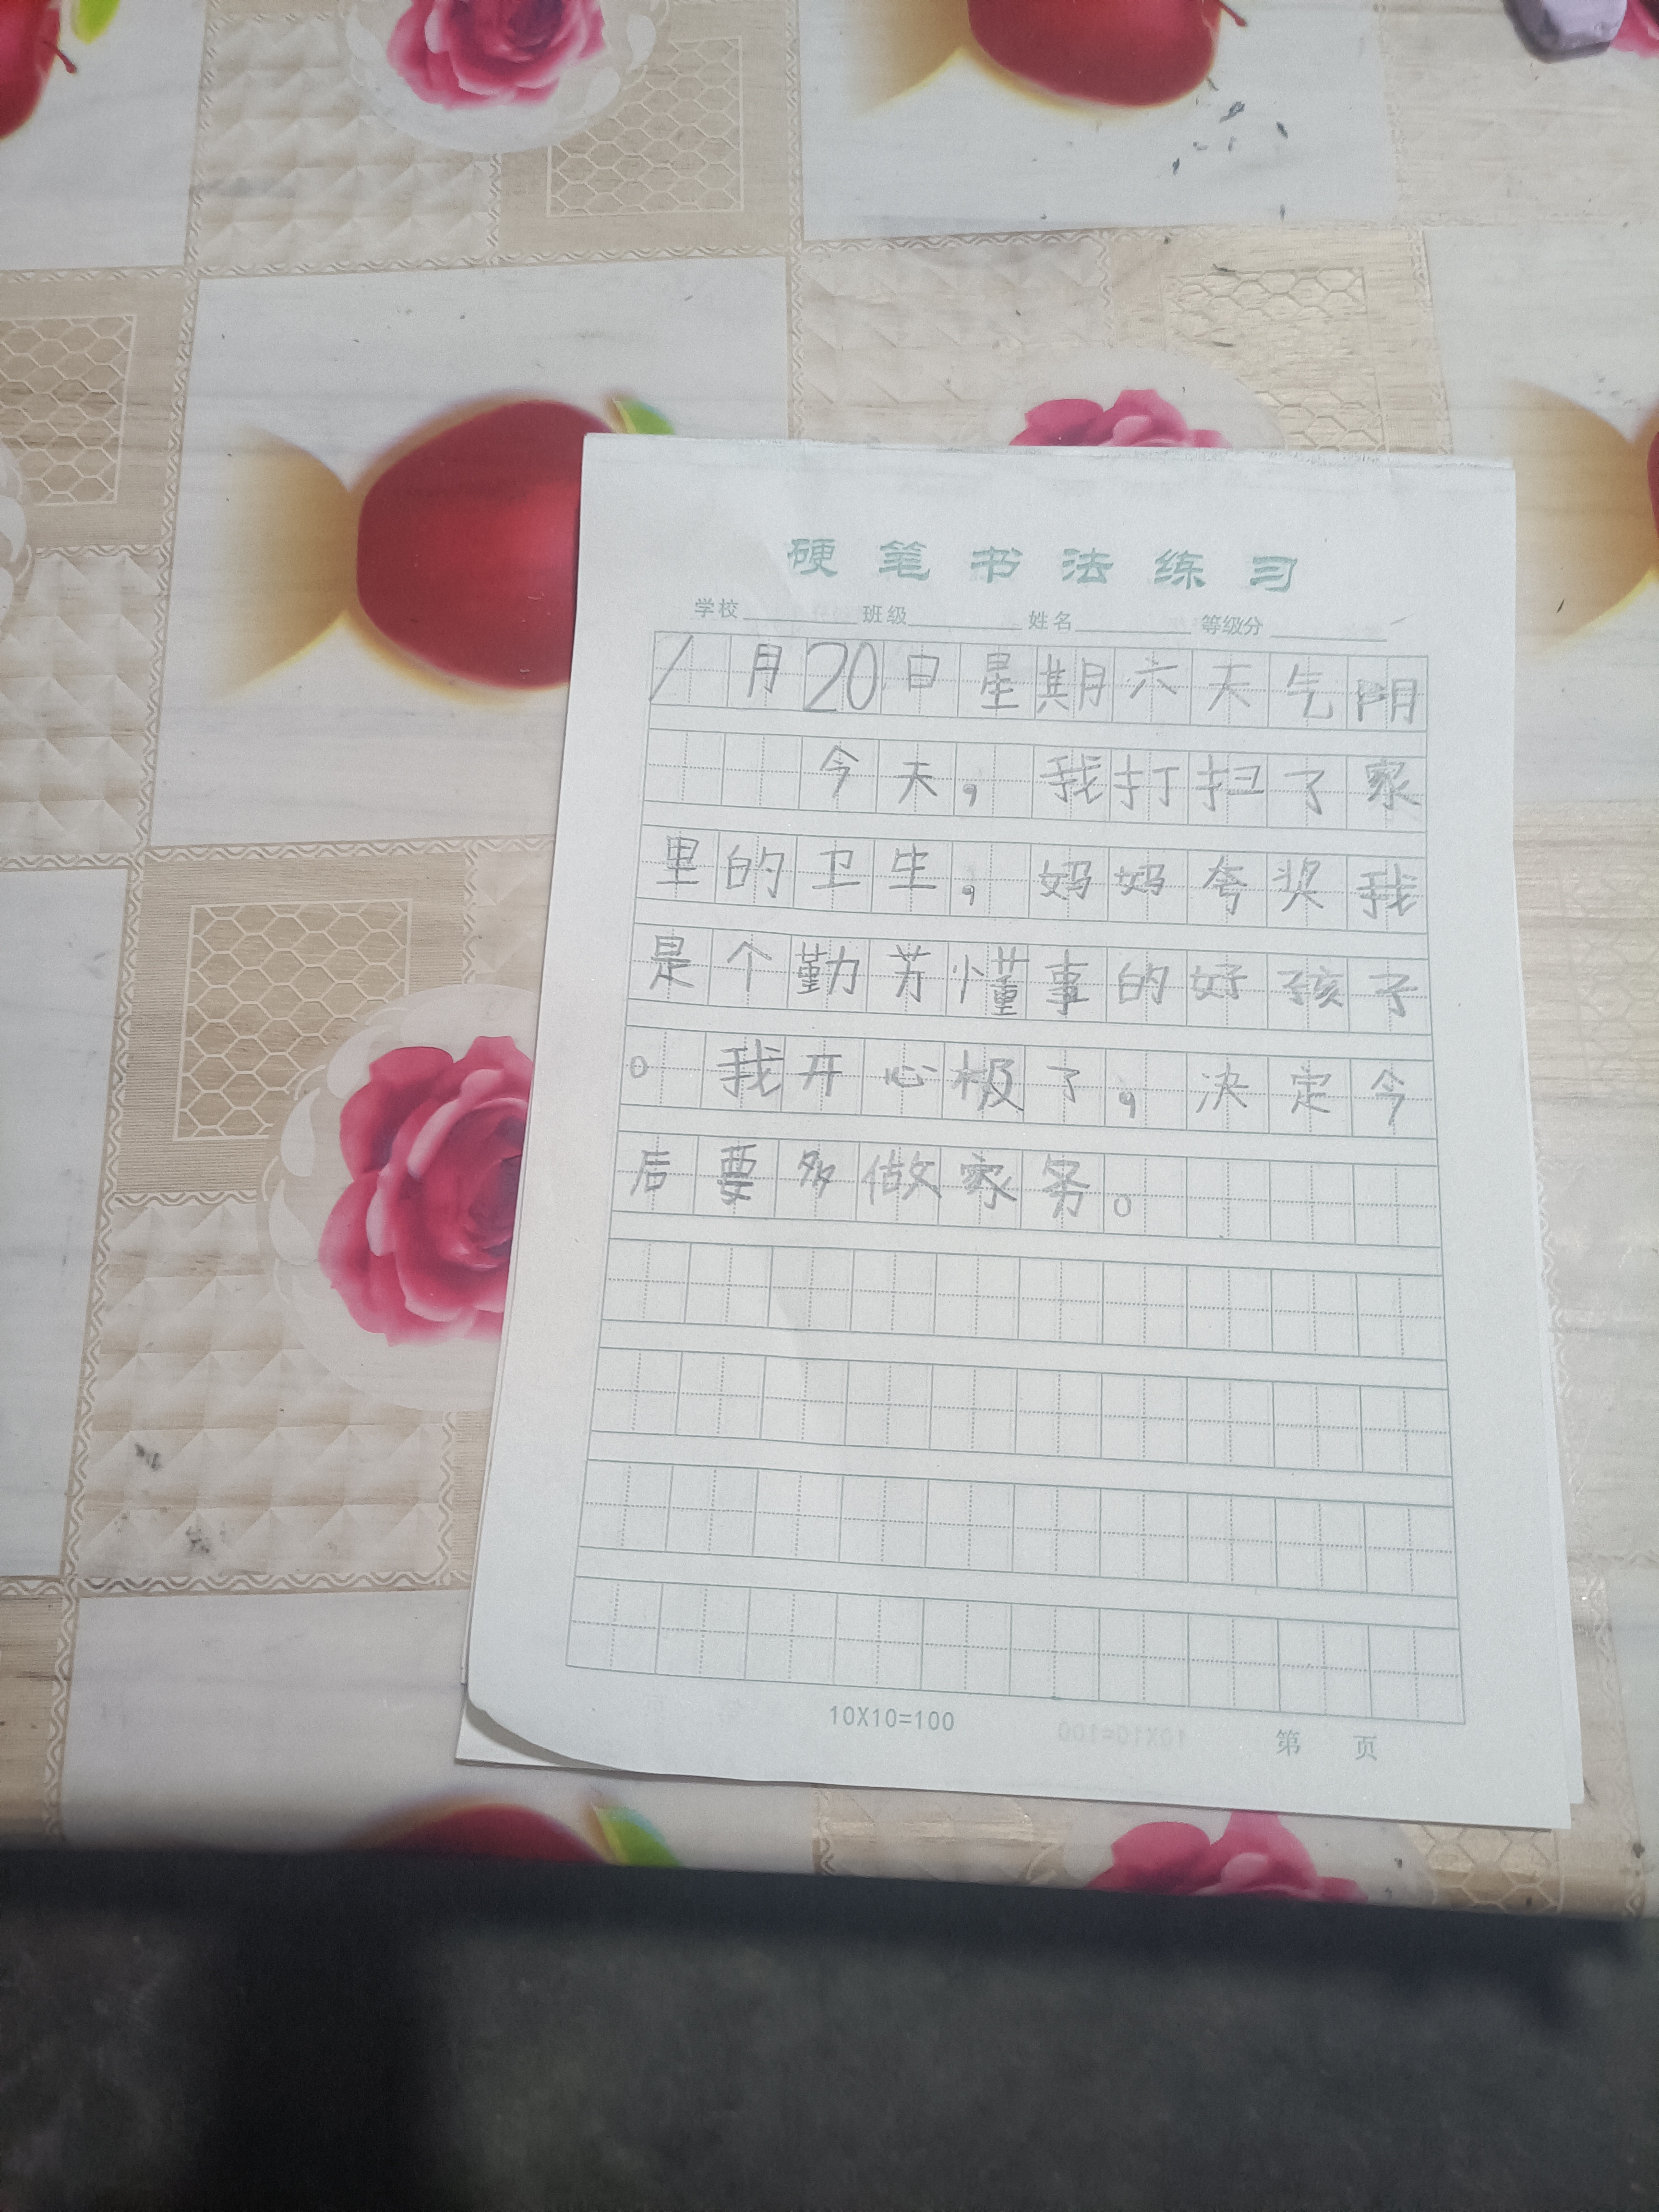 硬笔书法练习
学校 班级 姓名 等级分
1月20日星期六天气阴
今天，我打扫了家
里的卫生，妈妈夸奖我
是个勤劳懂事的好孩子
。我开心极了，决定今
后要多做家务。
10X10=100
第 页